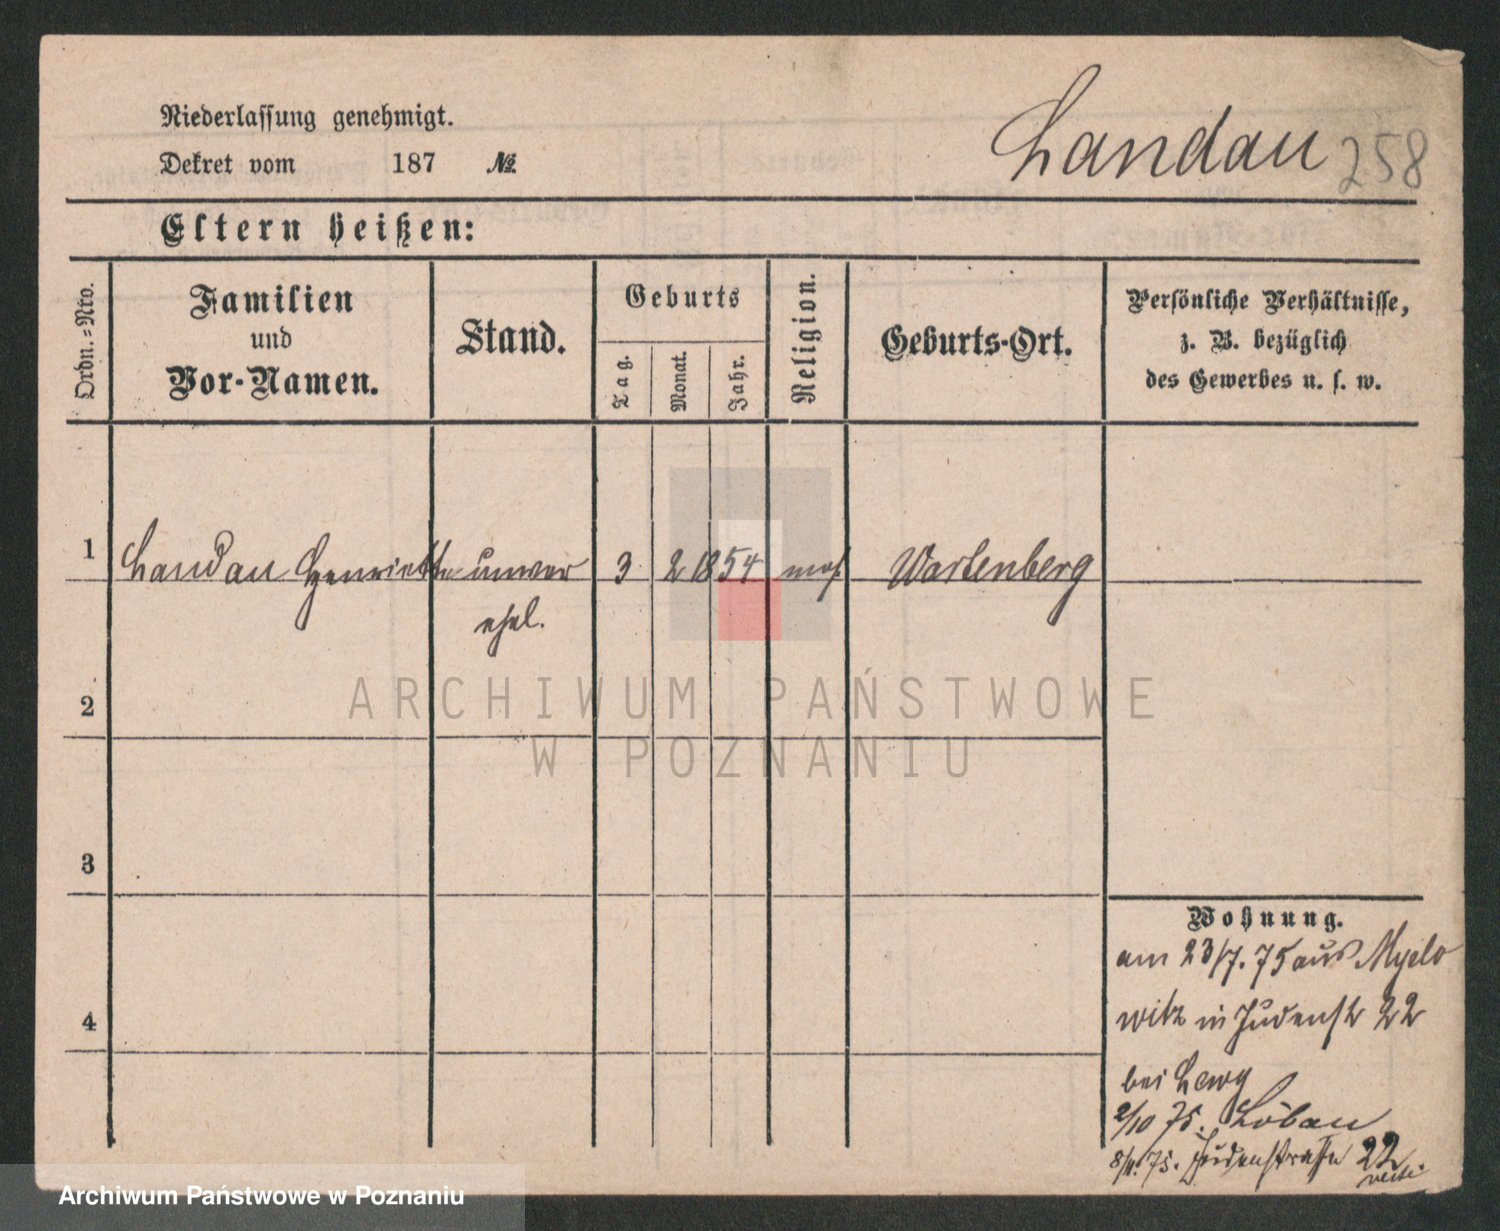 Niederlassung genehmigt.
Landau 258
Dekret vom 187 №
Eltern heißen:
Ordn.-Nro.
Familien
und
Vor-Namen.
Stand.
Geburts
Tag.
Monat.
Jahr.
Religion.
Geburts-Ort.
Persönliche Verhältnisse,
z. B. bezüglich
des Gewerbes u. s. w.
1 Landau Henriette unver 3 2 1854 mos Wartenberg
ehel.
2
ARCHIWUM PAŃSTWOWE
W POZNANIU
3
Wohnung.
am 23/7. 75 aus Myslo
4
witz in Judenstr 22
bei Lewy
2/10 75. Löbau
8/11. 75. Judenstraße 22
Archiwum Państwowe w Poznaniu